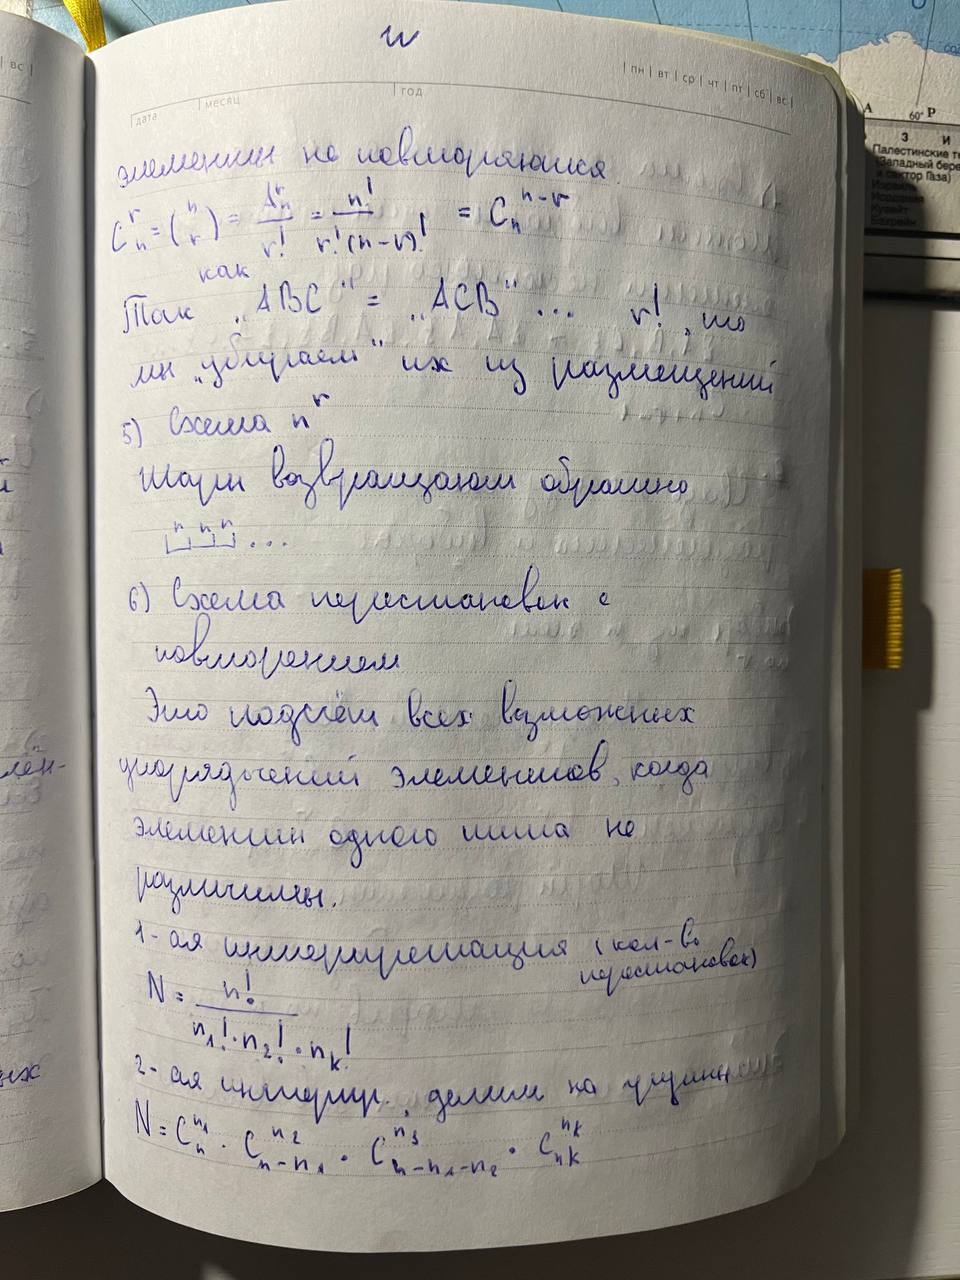 и
дата | месяц | год | пн | вт | ср | чт | пт | сб | вс |
элементы не повторяются.
C_n^r = (n r) = A_n^r / r! = n! / r!(n-r)! = C_n^{n-r}
как
Так „ABC" = „ACB" ... r!, то
мы „убираем" их из размещений
5) Схема n^r
Шары возвращаем обратно
n n n ...
6) Схема перестановок с
повторением
Это подсчёт всех возможных
упорядочений элементов, когда
элементы одного типа не
различимы.
1-ая интерпретация (кол-во
перестановок)
N = n! / n₁! · n₂! · n_k!
2-ая интерпр., делим на группы
N = C_n^{n₁} · C_{n-n₁}^{n₂} · C_{n-n₁-n₂}^{n₃} · C_{nk}^{nk}
| вс |
лён-
их
А 60° Р
З И
Палестинские те
(Западный бере
и сектор Газа)
Израиль
Иордания
Кувейт
Бахрейн